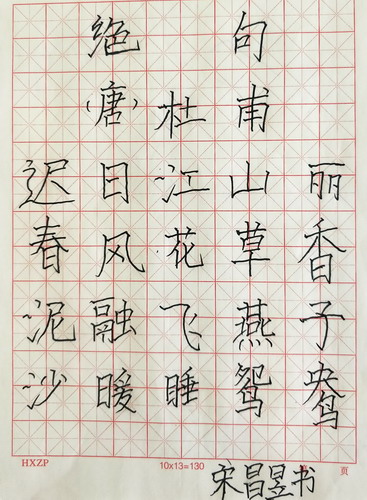 绝句
(唐)杜甫
迟日江山丽
春风花草香
泥融飞燕子
沙暖睡鸳鸯
HXZP 10x13=130 页
宋昌昱书